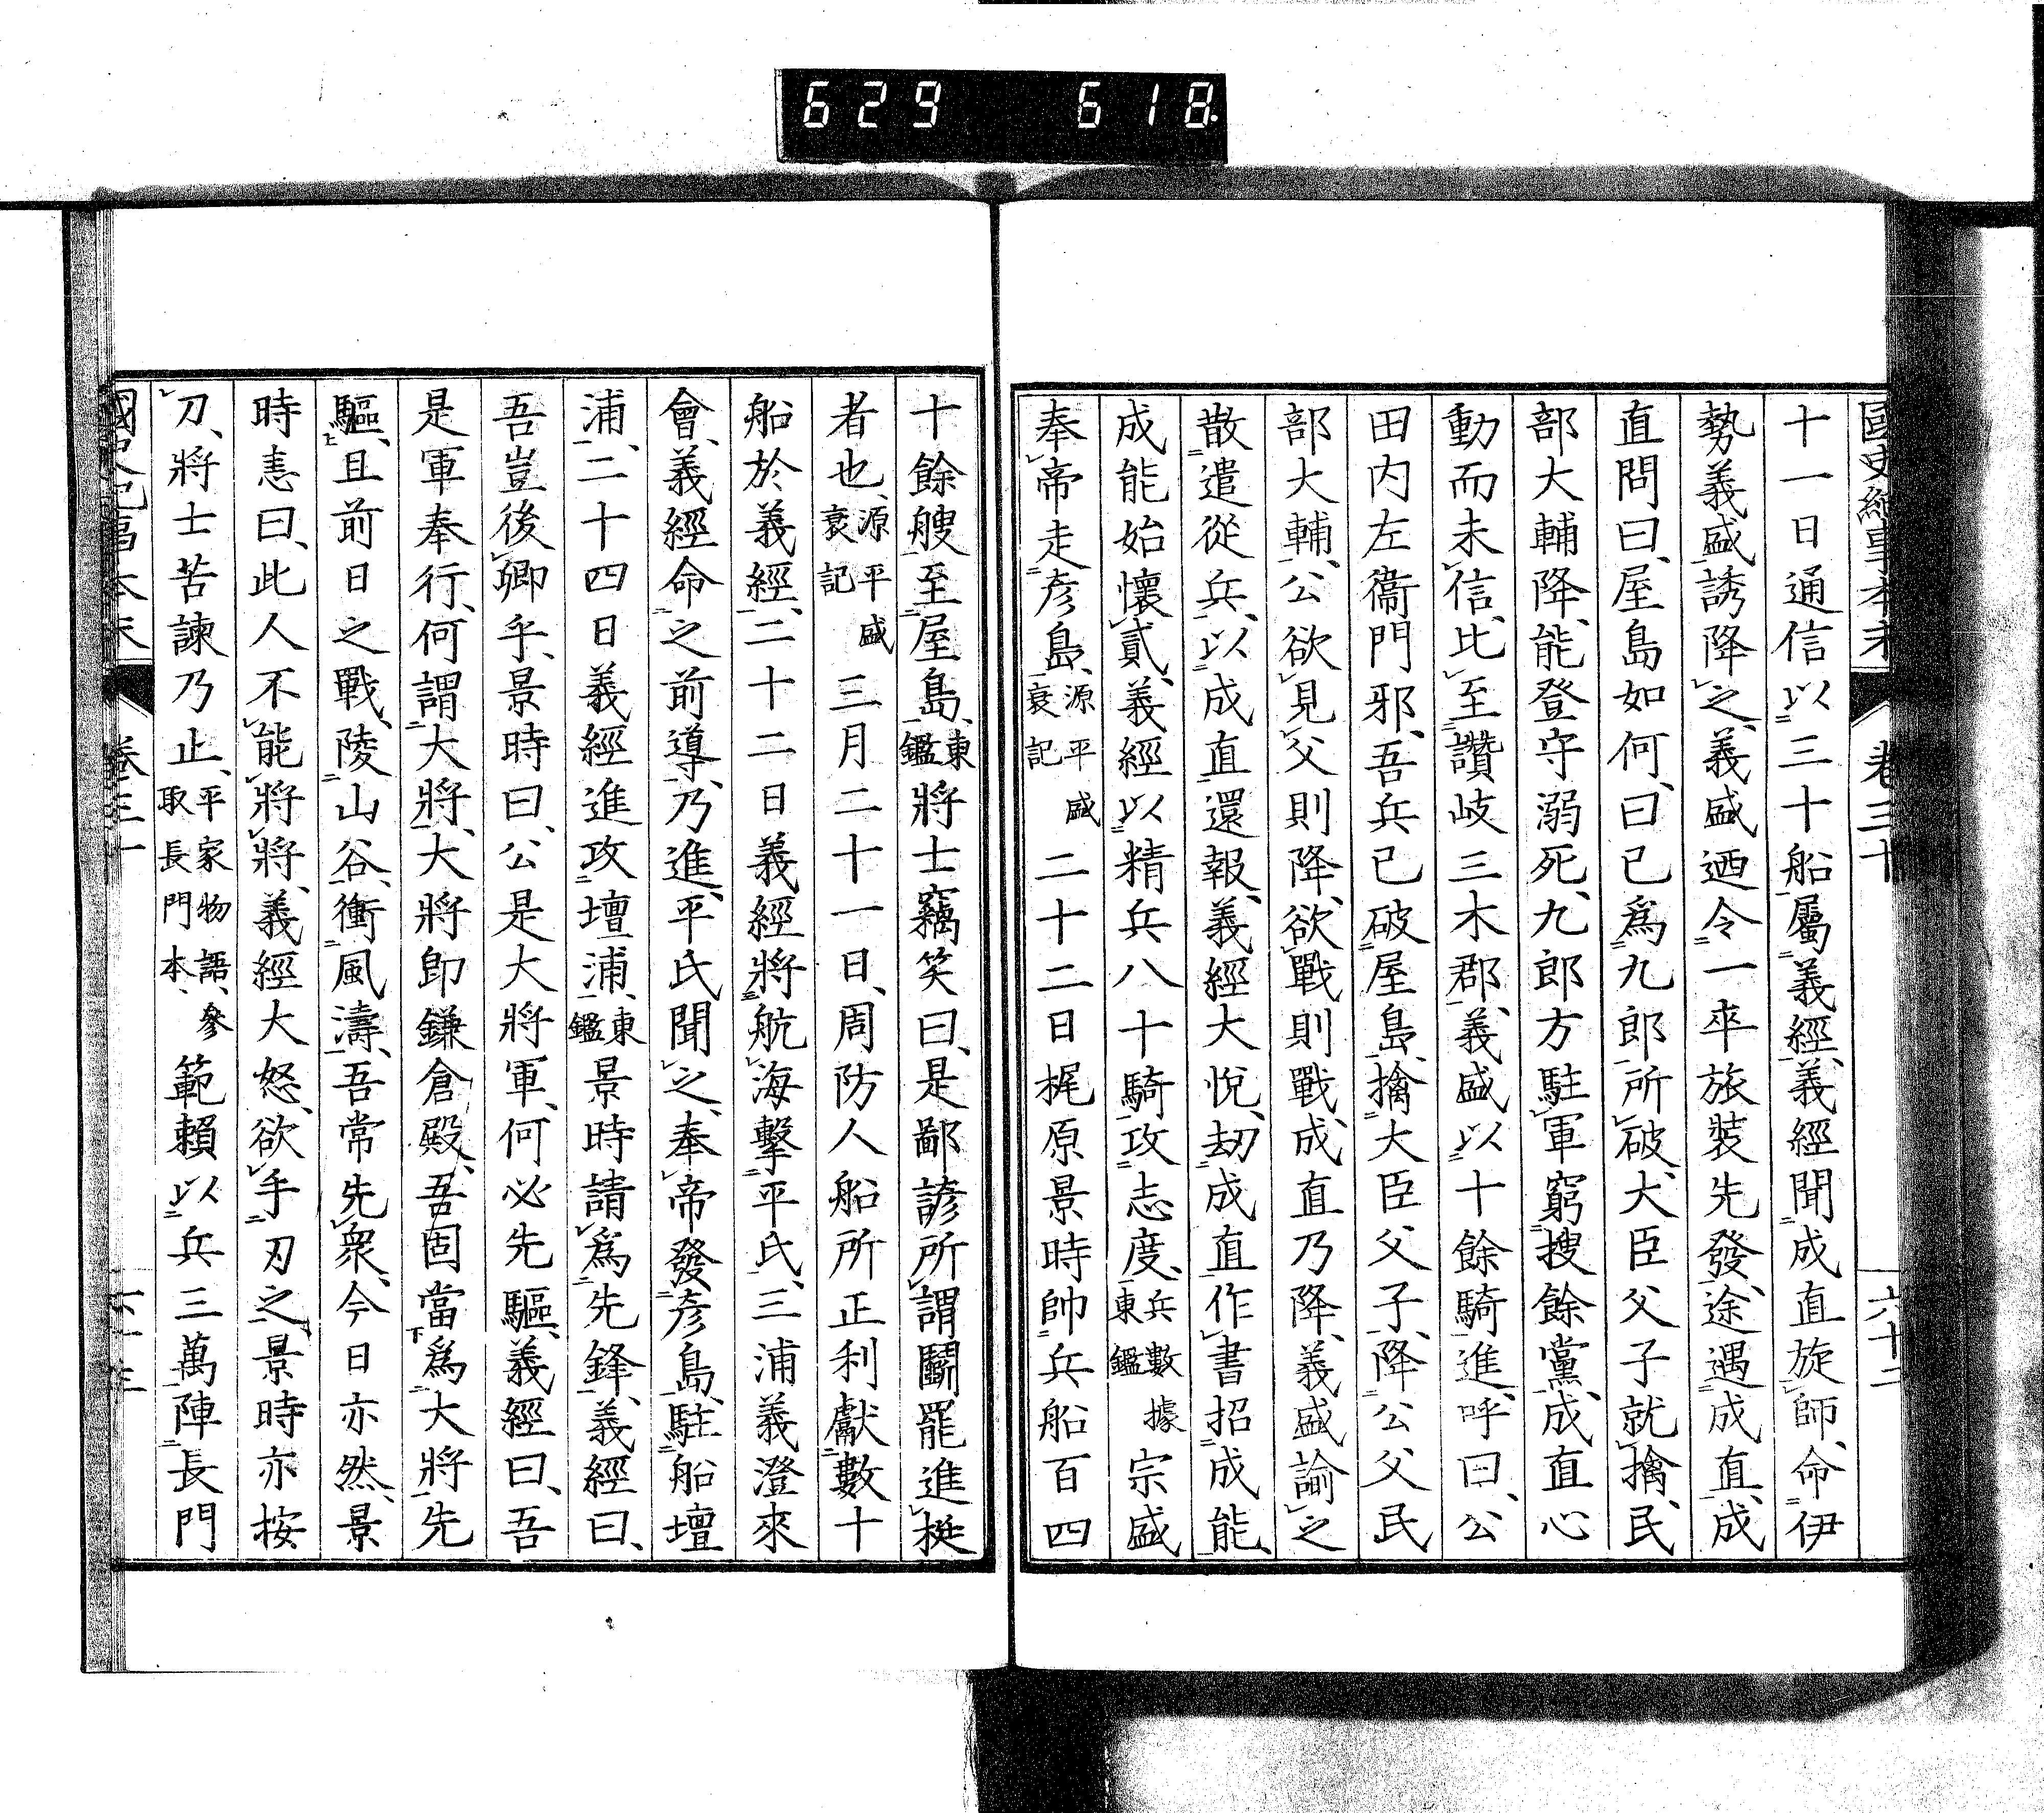 629 618
國史紀事本末 卷三十 六十二
十一日通信以三十船屬義經、義經聞成直旋師、命伊
勢義盛誘降之、義盛迺令一卒旅裝先發、途遇成直、成
直問曰、屋島如何、曰已爲九郎所破、大臣父子就擒、民
部大輔降、能登守溺死、九郎方駐軍窮搜餘黨、成直心
動而未信、比至讚岐三木郡、義盛以十餘騎進、呼曰、公
田内左衞門邪、吾兵已破屋島、擒大臣父子、降公父民
部大輔、公欲見父則降、欲戰則戰、成直乃降、義盛諭之
散遣從兵、以成直還報、義經大悅、劫成直作書招成能、
成能始懷貳、義經以精兵八十騎攻志度、兵數據東鑑宗盛
奉帝走彥島、源平盛衰記二十二日梶原景時帥兵船百四
十餘艘至屋島、東鑑將士竊笑曰、是鄙諺所謂鬭罷進梃
者也、源平盛衰記三月二十一日、周防人船所正利獻數十
船於義經、二十二日義經將航海擊平氏、三浦義澄來
會、義經命之前導、乃進、平氏聞之、奉帝發彥島、駐船壇
浦、二十四日義經進攻壇浦、東鑑景時請爲先鋒、義經曰、
吾豈後卿乎、景時曰、公是大將軍、何必先驅、義經曰、吾
是軍奉行、何謂大將、大將卽鎌倉殿、吾固當爲大將先
驅、且前日之戰、陵山谷、衝風濤、吾常先衆、今日亦然、景
時恚曰、此人不能將將、義經大怒、欲手刃之、景時亦按
刀、將士苦諫乃止、平家物語、參取長門本、範賴以兵三萬陣長門
國史紀事本末 卷三十 六十三